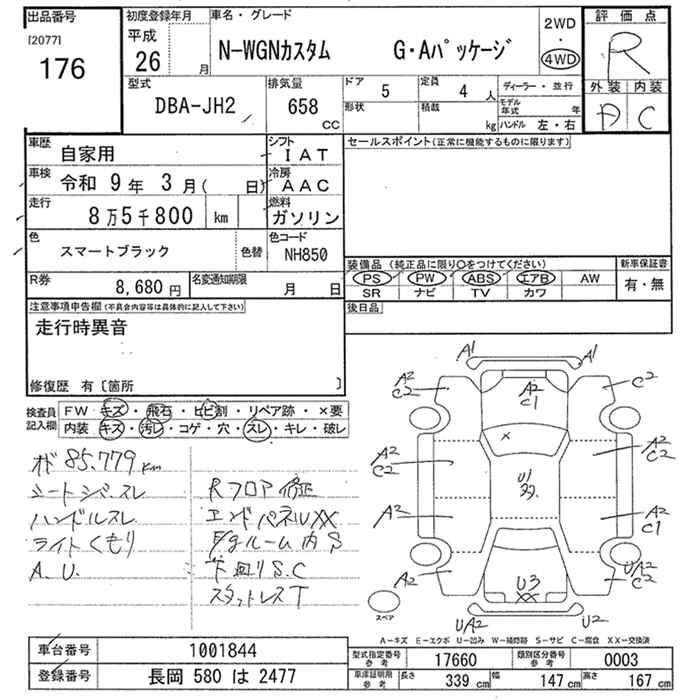 出品番号
[2077]
176
初度登録年月
平成
26 月
車名・グレード
N-WGNカスタム G・Aパッケージ
2WD
・
4WD
評価点
R
外装 内装
A C
型式
DBA-JH2
排気量
658
CC
ドア 5
定員 4 人
形状
積載 kg
ディーラー・並行
モデル年式 年
ハンドル 左・右
車歴
自家用
シフト
IAT
車検
令和 9年 3月( 日)
冷房
AAC
走行
8万5千800 km
燃料
ガソリン
色
スマートブラック
色替
色コード
NH850
R券
8,680 円
名変通知期限
月 日
セールスポイント(正常に機能するものに限ります)
装備品(純正品に限り○をつけてください)
新車保証書
PS PW ABS エアB AW
SR ナビ TV カワ
有・無
後日品
注意事項申告欄(不具合内容等は具体的に記入して下さい)
走行時異音
修復歴 有〔箇所 〕
検査員
記入欄
FW キズ・飛石・ヒビ割・リペア跡・×要
内装 キズ・汚レ・コゲ・穴・スレ・キレ・破レ
オド 85.779km
シートシバ、スレ
ハンドルスレ
ライトくもり
A.U.
Rフロア修正
エンドパネルXX
F/gルーム内S
下廻りS.C
スタットレスT
A1
A1
A2
C2
A2
C1
C2
×
A2
C2
A2
C2
U1
A2
A2
C1
A2
U3
XX
UA2
C2
スペア
UA2
U2
A－キズ E－エクボ U－凹み W－補修跡 S－サビ C－腐食 XX－交換済
車台番号
1001844
登録番号
長岡 580 は 2477
型式指定番号
参考
17660
類別区分番号
参考
0003
車庫証明用
参考
長さ 339 cm
幅 147 cm
高さ 167 cm